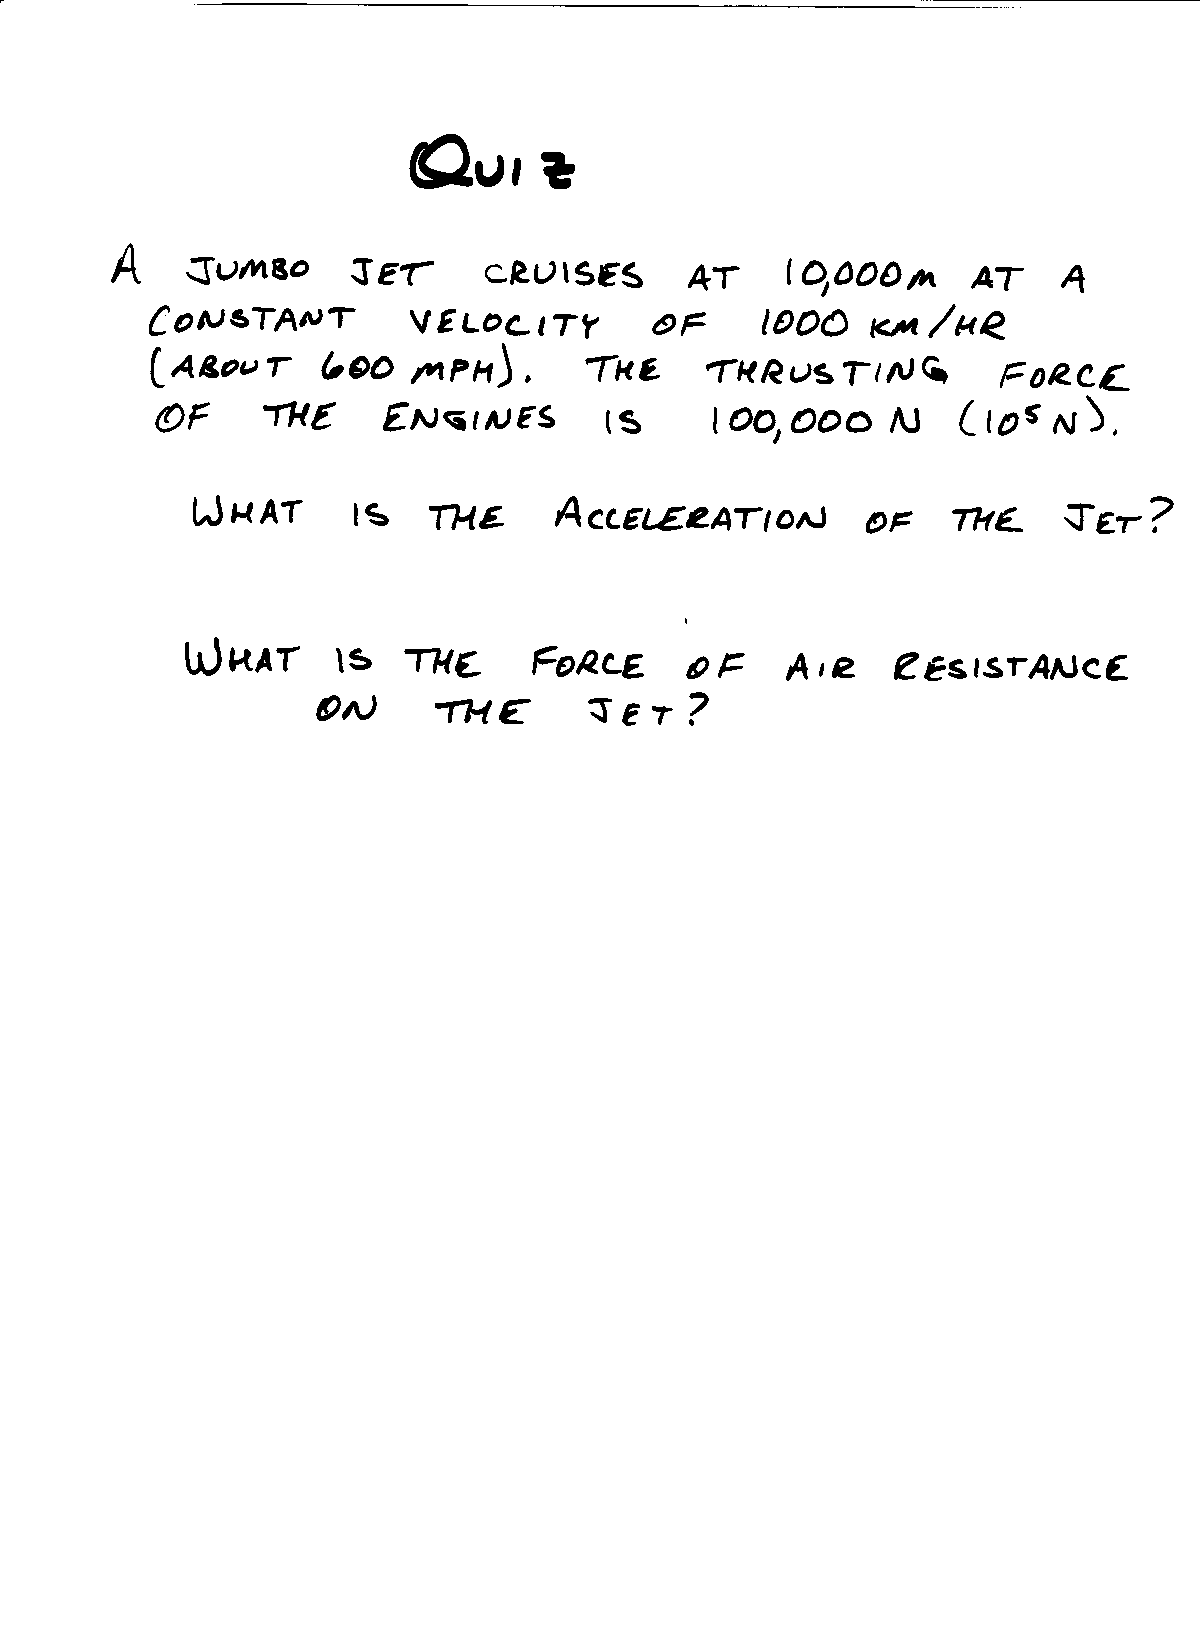 QUIZ
A JUMBO JET CRUISES AT 10,000M AT A
CONSTANT VELOCITY OF 1000 KM/HR
(ABOUT 600 MPH). THE THRUSTING FORCE
OF THE ENGINES IS 100,000 N (10⁵ N).
WHAT IS THE ACCELERATION OF THE JET?
WHAT IS THE FORCE OF AIR RESISTANCE
ON THE JET?